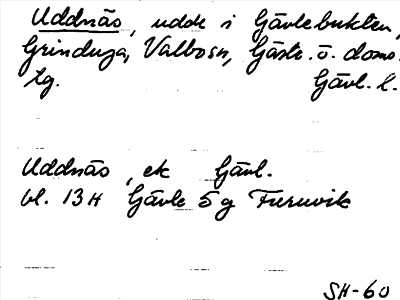 Uddnäs, udde i Gävlebukten,
Grinduga, Valbo sn, Gästr. ö. doms.
tg. Gävl. l.
Uddnäs, ek Gävl.
bl. 13H Gävle 5g Furuvik
SH-60